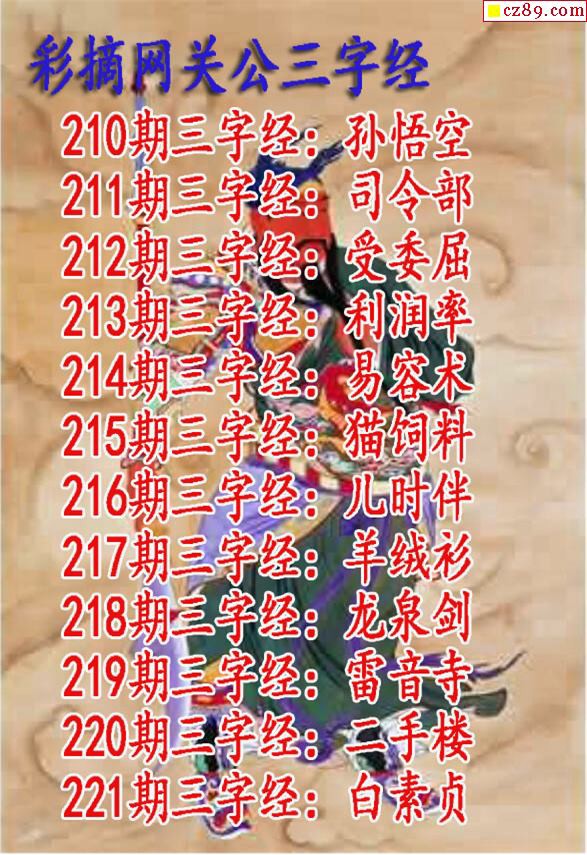 cz89.com
彩摘网关公三字经
210期三字经：孙悟空
211期三字经：司令部
212期三字经：受委屈
213期三字经：利润率
214期三字经：易容术
215期三字经：猫饲料
216期三字经：儿时伴
217期三字经：羊绒衫
218期三字经：龙泉剑
219期三字经：雷音寺
220期三字经：二手楼
221期三字经：白素贞